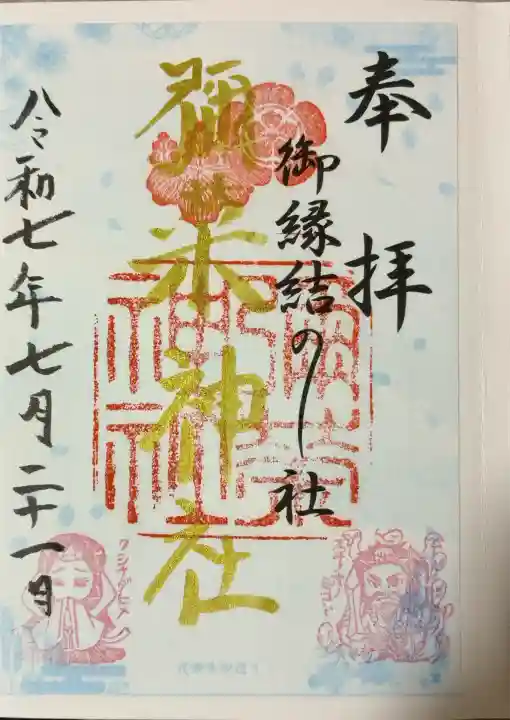 奉拝
御縁結の社
彌榮神社
令和七年七月二十一日
クシナダヒメ